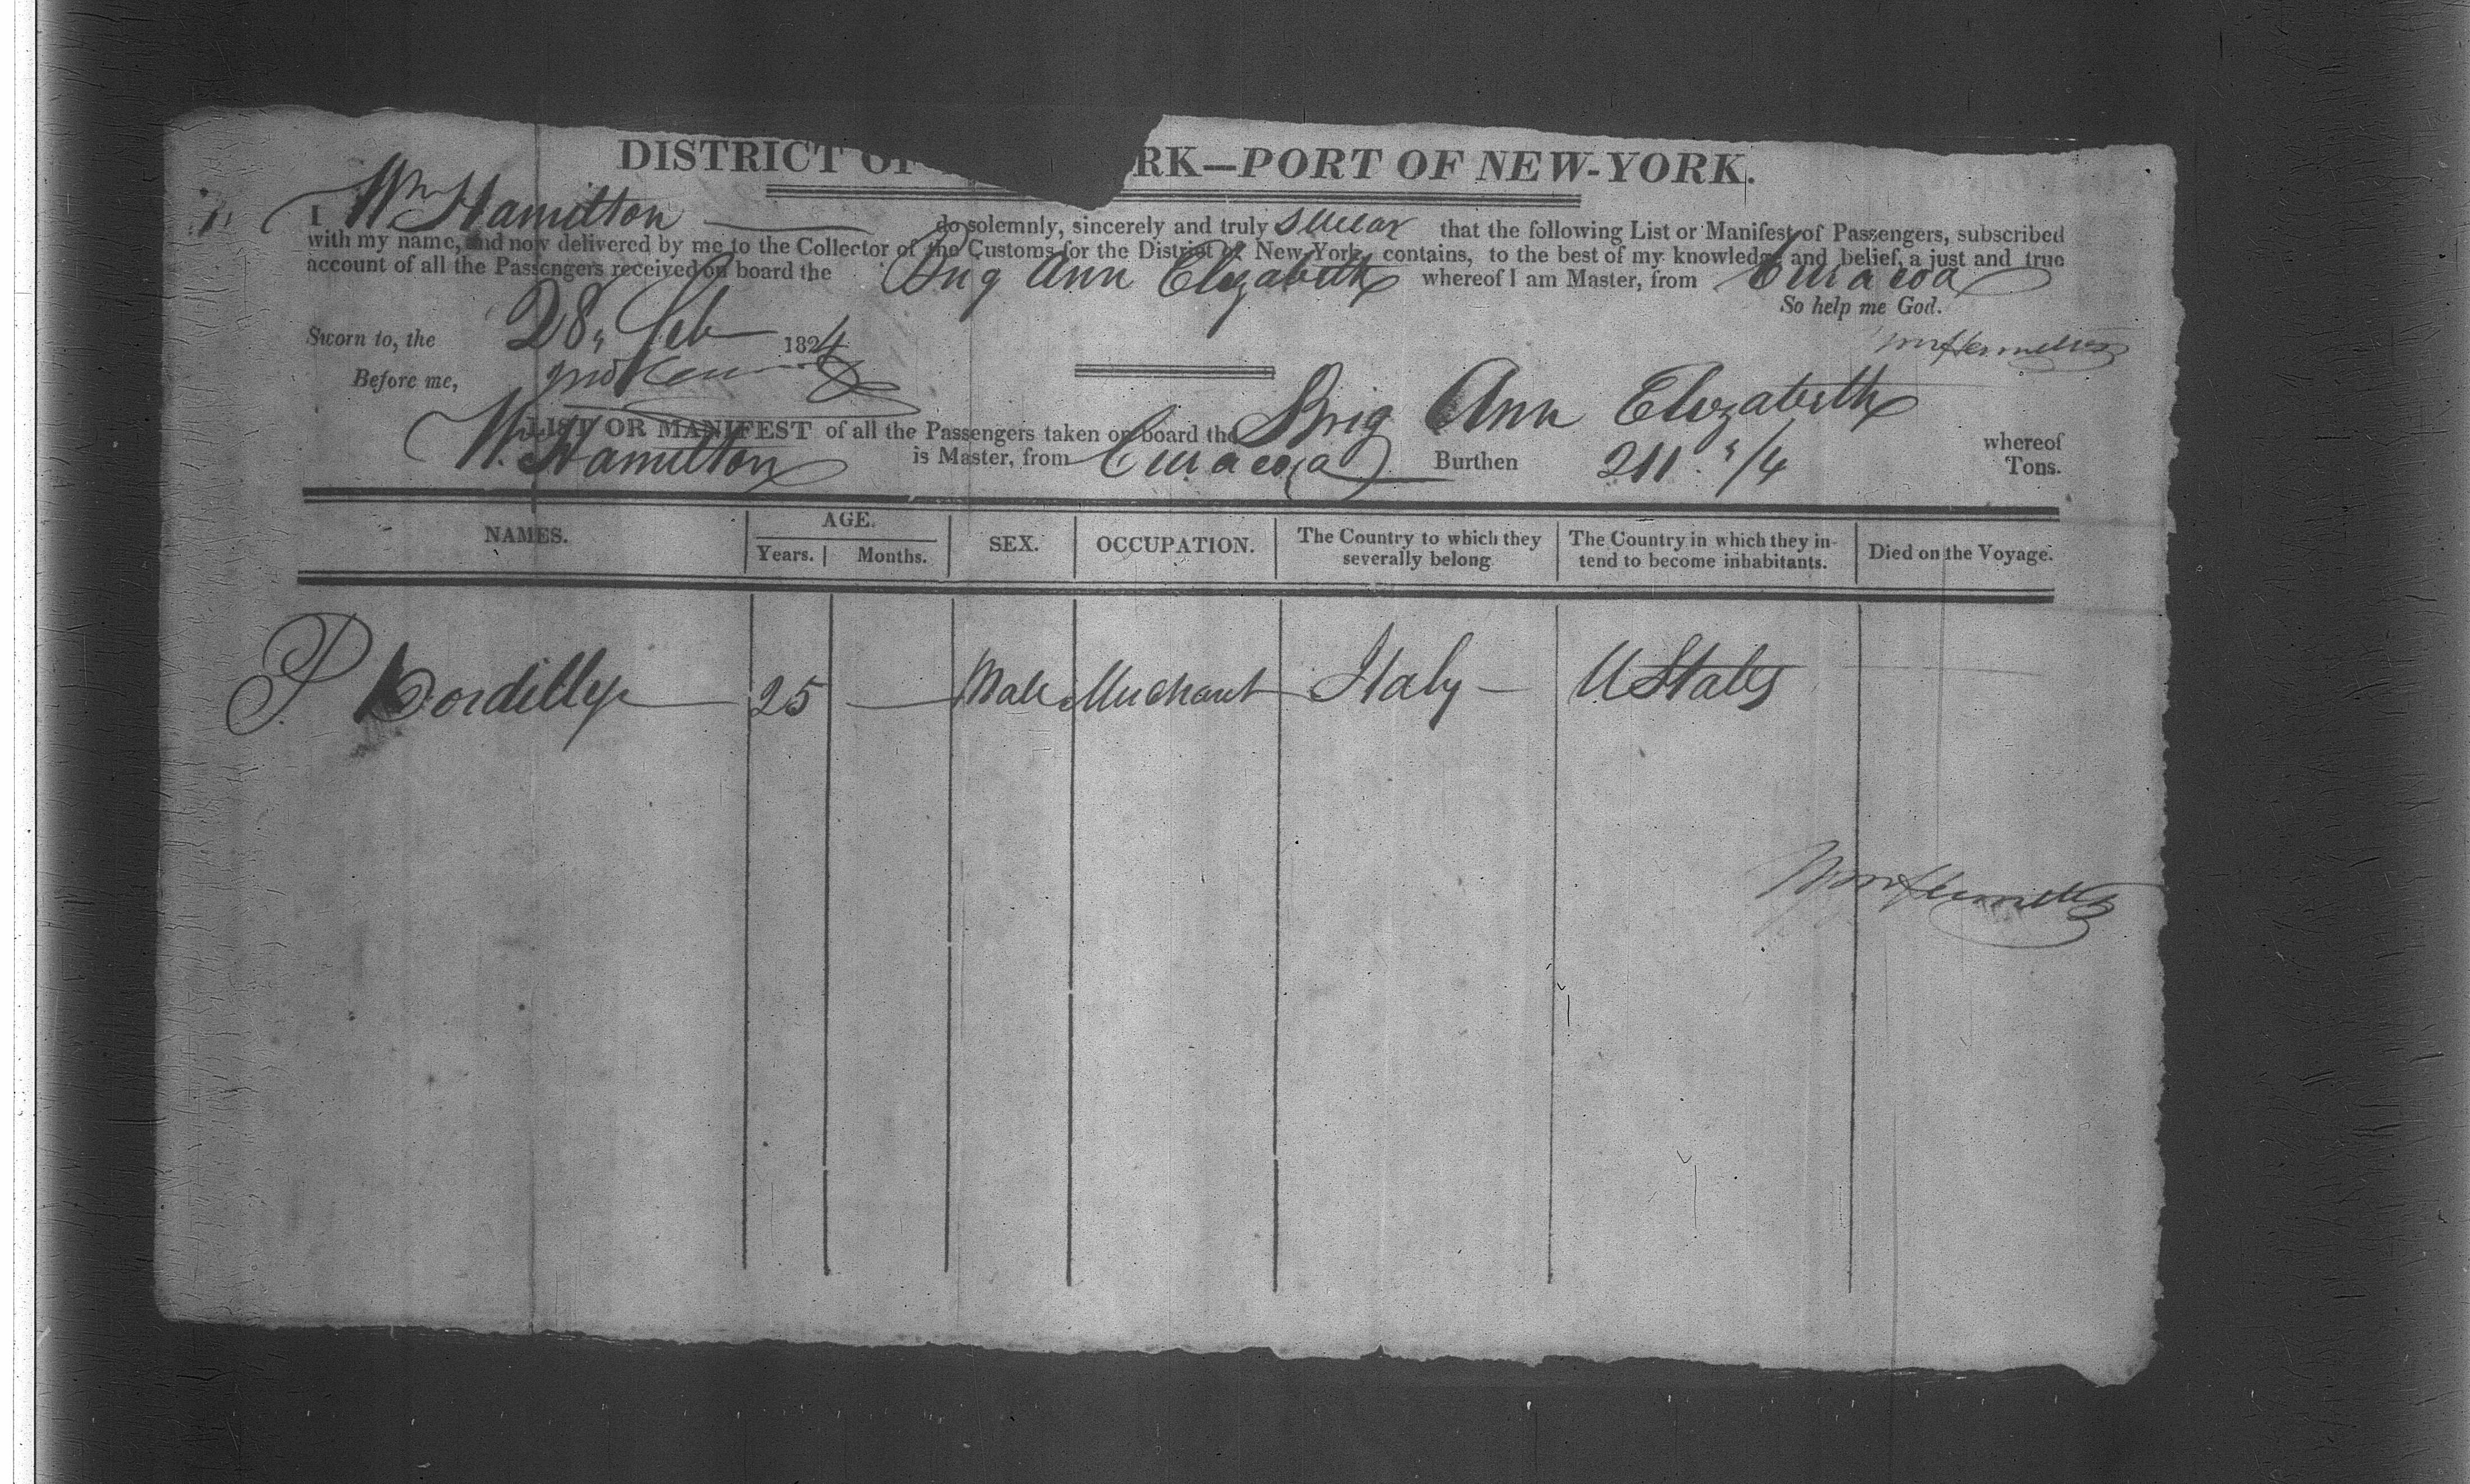 DISTRICT OF RK—PORT OF NEW-YORK.
I Wm Hamilton do solemnly, sincerely and truly swear that the following List or Manifest of Passengers, subscribed
with my name, and now delivered by me to the Collector of the Customs for the District of New York, contains, to the best of my knowledge and belief, a just and true
account of all the Passengers received on board the Brig Ann Elizabeth whereof I am Master, from Curacoa
So help me God.
Sworn to, the 28, Feb 1824
Wm Hamilton
Before me,
LIST OR MANIFEST of all the Passengers taken on board the Brig Ann Elizabeth whereof
Wm Hamilton is Master, from Curacoa Burthen 211 /4 Tons.
NAMES. AGE. SEX. OCCUPATION. The Country to which they severally belong The Country in which they intend to become inhabitants. Died on the Voyage.
Years. Months.
P Bordilly 25 — Male Merchant Italy — U States
Wm Hamilton